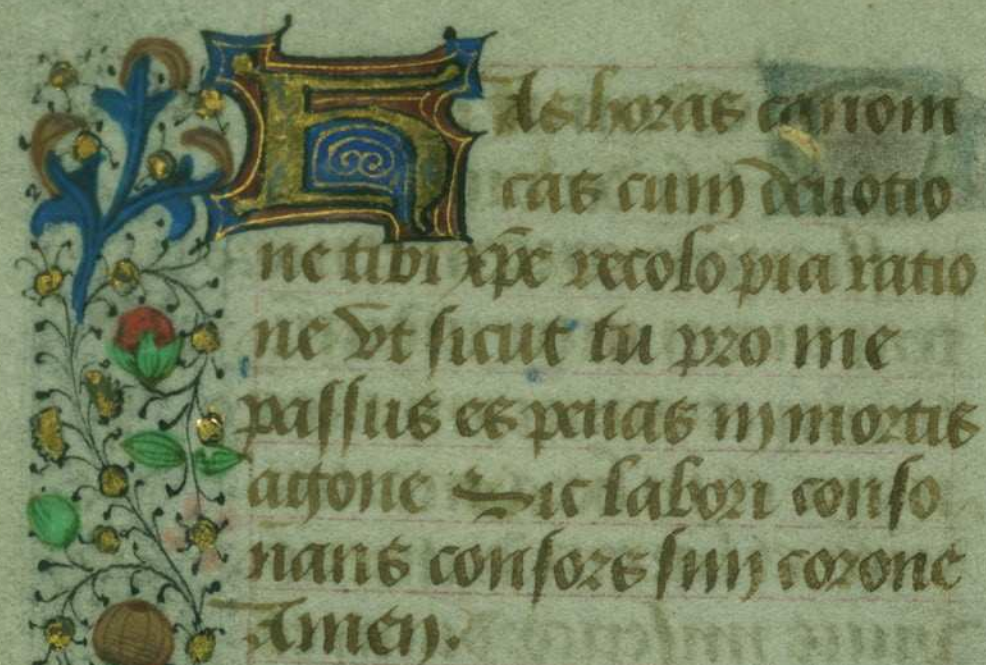 HAs horas canoni
cas cum deuotio
ne tibi xp̄e recolo pia ratio
ne Vt sicut tu pro me
passus es penas in mortis
agone Sic labori conso
nans consors sim corone
Amen.